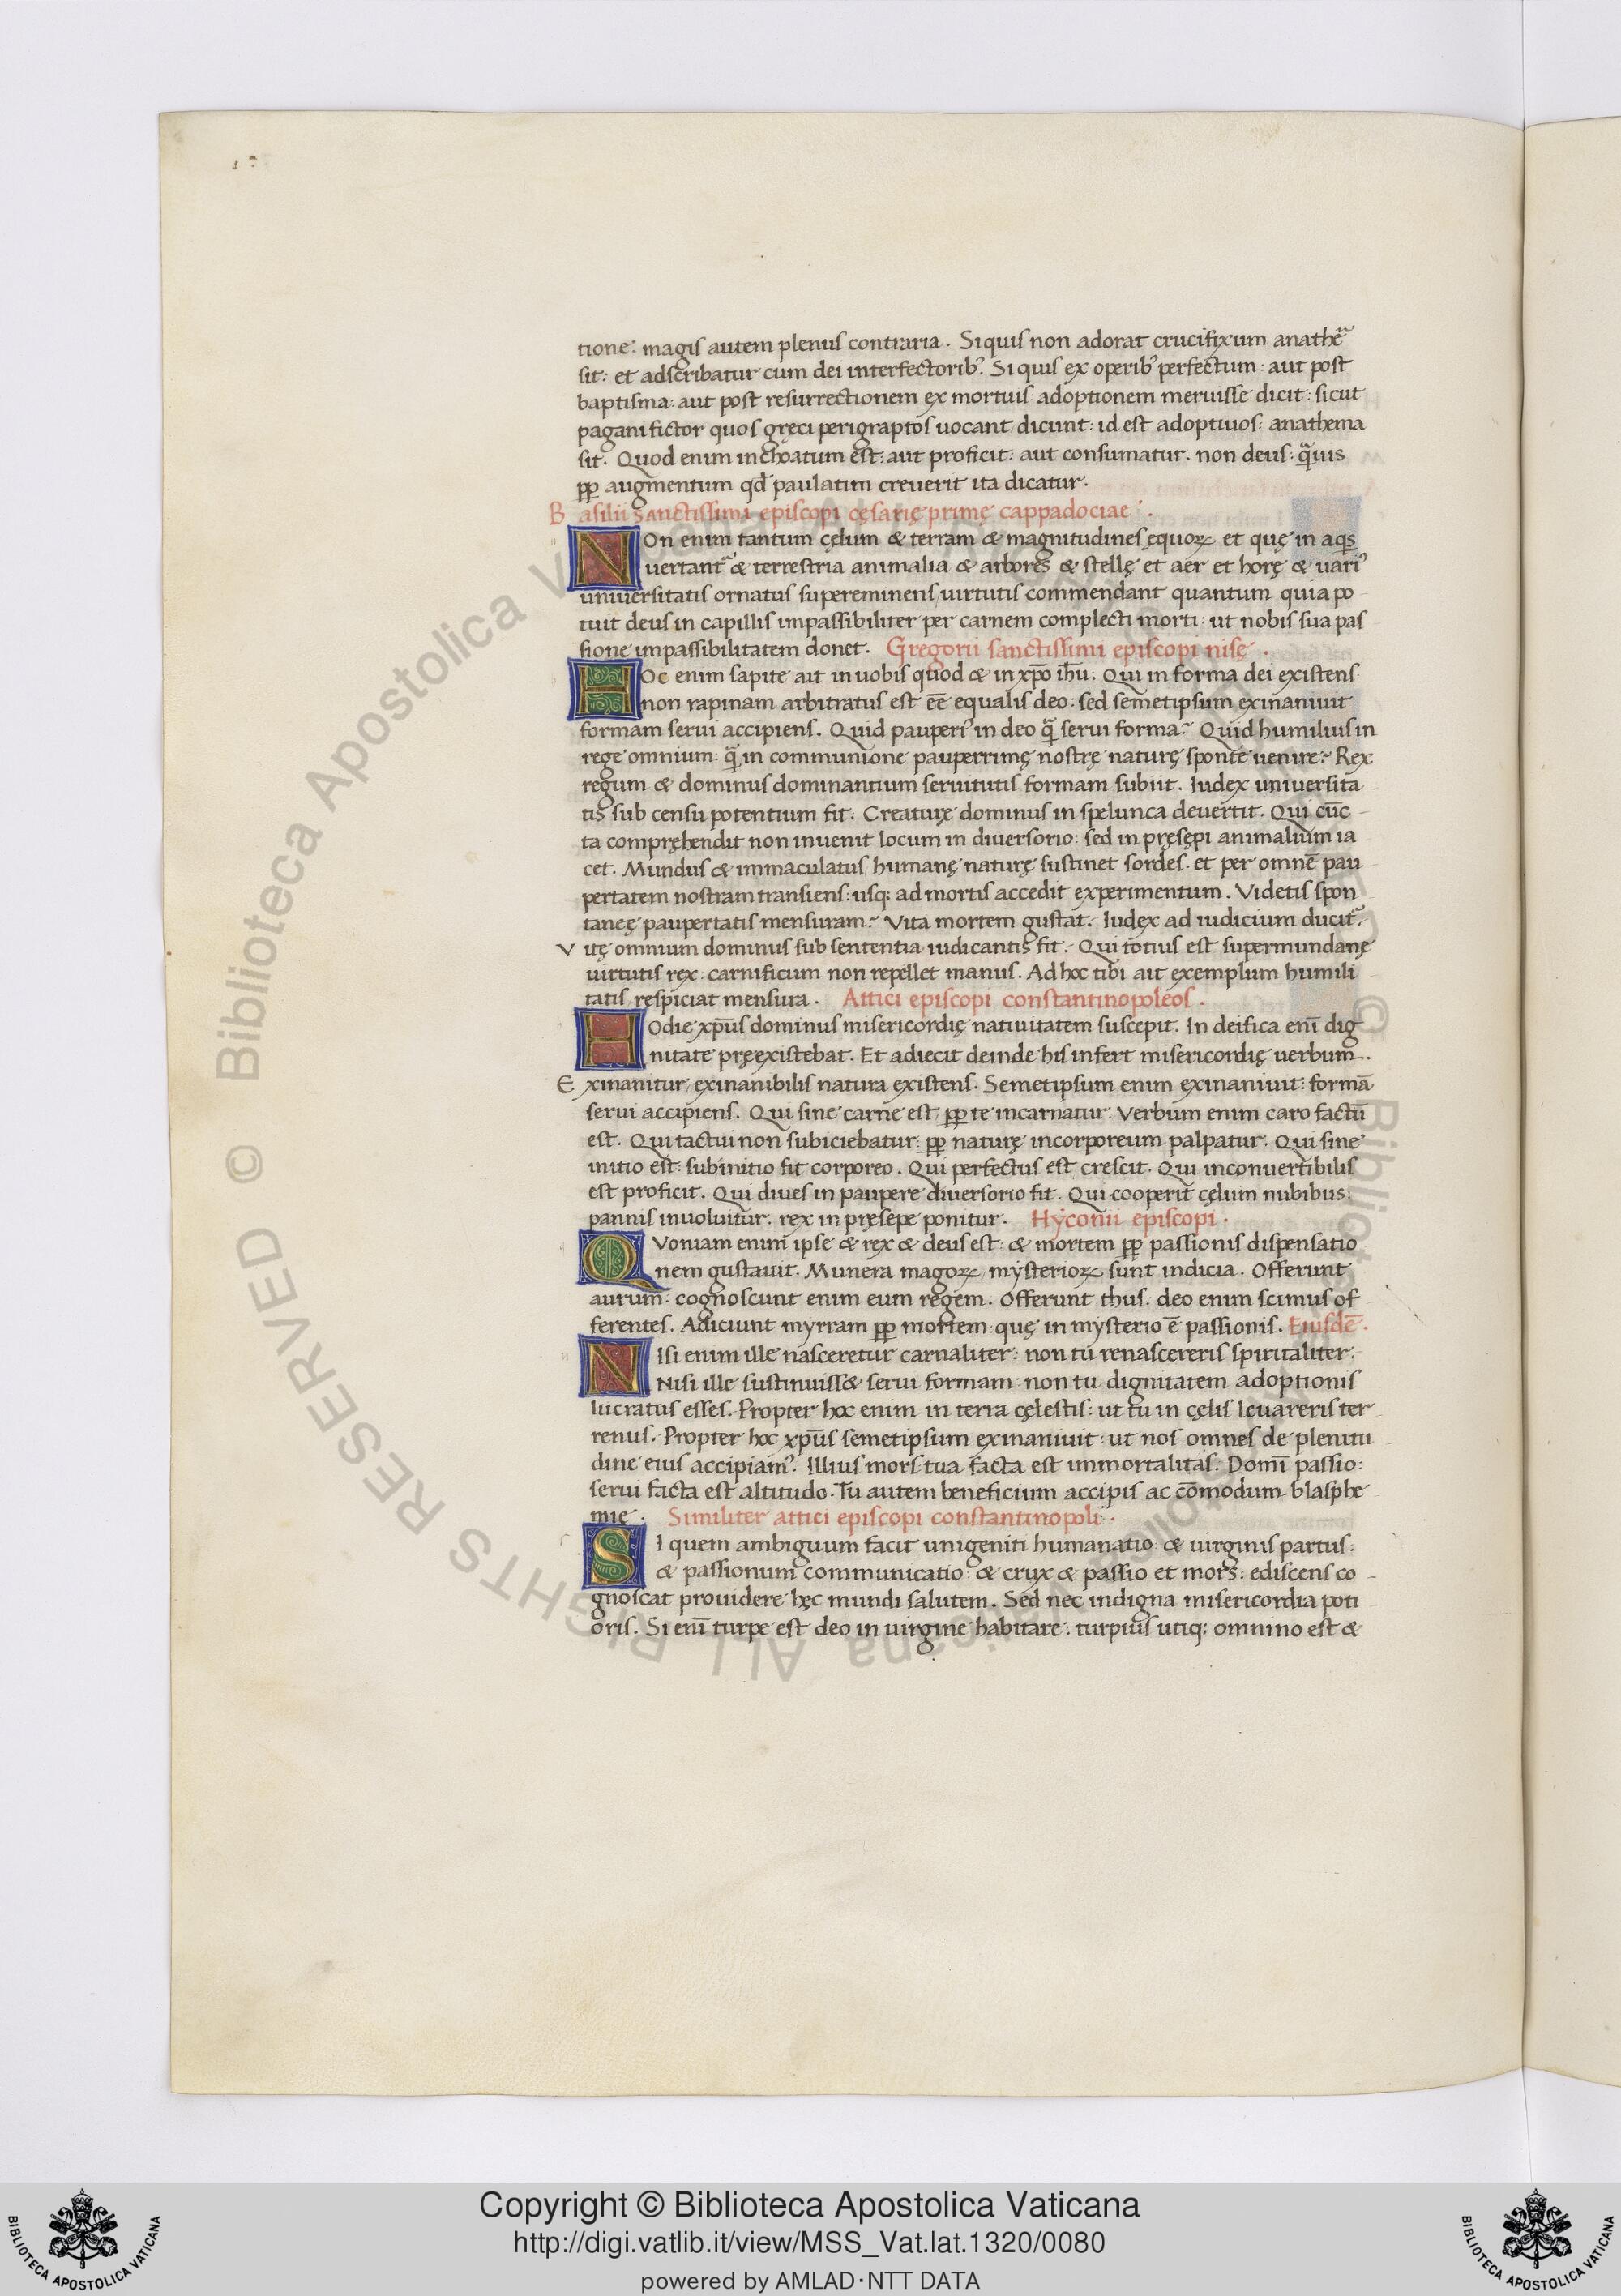 tione: magis autem plenus contraria. Si quis non adorat crucifixum anathẽᵃ
sit: et adscribatur cum dei interfectorib᾽. Si quis ex operib᾽ perfectum: aut post
baptisma: aut post resurrectionem ex mortuis: adoptionem meruisse dicit: sicut
pagani fictor quos gręci perigraptos uocant dicunt: id est adoptiuos: anathema
sit. Quod enim inchoatum est: aut proficit: aut consumatur. non deus: qᷓuis
ꝓp augmentum qđ paulatim creuerit ita dicatur.
Basilii sanctissimi episcopi cęsarię primę cappadociae.
NOn enim tantum cęlum & terram & magnitudines ęquoꝝ et quę in aqs
uertant᷑ & terrestria animalia & arbores & stellę et aer et horę & uari᾽
uniuersitatis ornatus supereminens uirtutis commendant quantum quia po
tuit deus in capillis impassibiliter per carnem complecti morti: ut nobis sua pas
sione impassibilitatem donet. Gregorii sanctissimi episcopi nisę.
HOc enim sapite ait in uobis quod & in xp̄o ihū. Qui in forma dei existens
non rapinam arbitratus est eē equalis deo: sed semetipsum exinaniuit
formam serui accipiens. Quid pauperi᾽ in deo qᷓ serui forma? Quid humilius in
rege omnium: qᷓ in communione pauperrimę nostrę naturę sponte uenire? Rex
regum & dominus dominantium seruitutis formam subiit. Iudex uniuersita
tis sub censu potentium fit. Creaturę dominus in spelunca deuertit. Qui cūc
ta compręhendit non inuenit locum in diuersorio: sed in pręsępi animalium ia
cet. Mundus & immaculatus humanę naturę sustinet sordes. et per omnē pau
pertatem nostram transiens: usq; ad mortis accedit experimentum. Videtis spon
tanęę paupertatis mensuram? Vita mortem gustat. Iudex ad iudicium ducit᷑.
Vitę omnium dominus sub sententia iudicantis fit. Qui totius est supermundanę
uirtutis rex: carnificum non repellet manus. Ad hoc tibi ait exemplum humili
tatis respiciat mensura. Attici episcopi constantinopoleos.
HOdie xp̄us dominus misericordię natiuitatem suscepit. In deifica enī dig
nitate pręexistebat. Et adiecit deinde his infert misericordię uerbum.
Exinanitur, exinanibilis natura existens. Semetipsum enim exinaniuit: formā
serui accipiens. Qui sine carne est ꝓp te incarnatur. Verbum enim caro factū
est. Qui tactui non subiciebatur: ꝓp naturę incorporeum palpatur. Qui sine
initio est: sub initio fit corporeo. Qui perfectus est crescit. Qui inconuertibilis
est proficit. Qui diues in paupere diuersorio fit. Qui cooperit cęlum nubibus:
pannis inuoluitur: rex in pręsepe ponitur. Hyconii episcopi.
QVoniam enim ipse & rex & deus est: & mortem ꝓp passionis dispensatio
nem gustauit. Munera magoꝝ mysterioꝝ sunt indicia. Offerunt
aurum: cognoscunt enim eum regem. Offerunt thus: deo enim scimus of
ferentes. Adiciunt myrram ꝓp mortem: quę in mysterio ē passionis. Eiusdē.
NIsi enim ille nasceretur carnaliter: non tu renascereris spiritaliter.
Nisi ille sustinuiss& serui formam: non tu dignitatem adoptionis
lucratus esses. Propter hoc enim in terra cęlestis: ut tu in cęlis leuareris ter
renus. Propter hoc xp̄us semetipsum exinaniuit: ut nos omnes de plenitu
dine eius accipiam᾽. Illius mors tua facta est immortalitas. Domī passio:
serui facta est altitudo. Tu autem beneficium accipis ac cōmodum blasphe
mię. Similiter attici episcopi constantinopoli.
SI quem ambiguum facit unigeniti humanatio: & uirginis partus:
& passionum communicatio: & crux & passio et mors: ediscens co
gnoscat prouidere hęc mundi salutem. Sed nec indigna misericordia poti
oris. Si enī turpe est deo in uirgine habitare: turpius utiq; omnino est &
© Biblioteca Apostolica Vaticana ALL RIGHTS RESERVED
© Biblioteca Apostolica Vaticana ALL RIGHTS RESERVED
Copyright © Biblioteca Apostolica Vaticana
http://digi.vatlib.it/view/MSS_Vat.lat.1320/0080
powered by AMLAD·NTT DATA
BIBLIOTECA APOSTOLICA VATICANA
BIBLIOTECA APOSTOLICA VATICANA